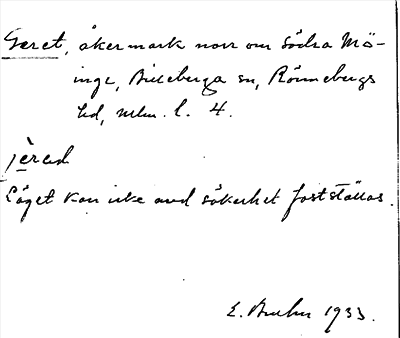 Geret, åkermark norr om Södra Mö-
inge, Billeberga sn, Rönnebergs
hd, Mlm. l. 4.
jèrəd
Läget kan icke med säkerhet fastställas.
E. Bruhn 1933.